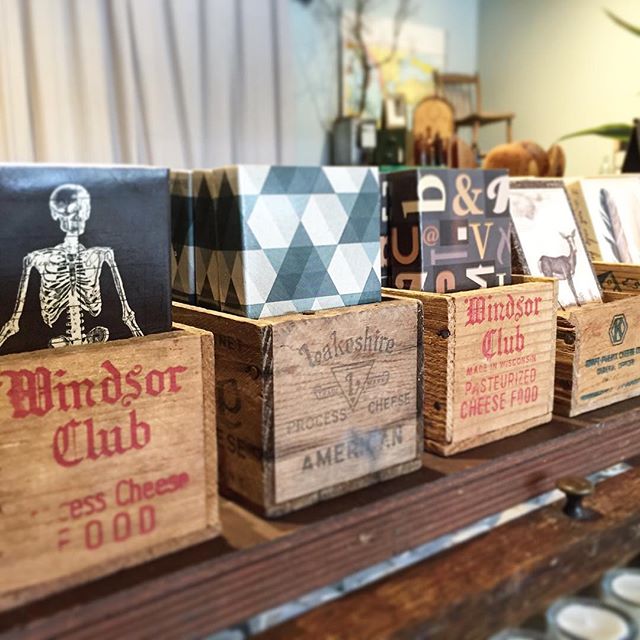 Windsor
Club
ess Cheese
FOOD
Lakeshire
PROCESS CHEESE
AMERICAN
&
@
V
Windsor
Club
MADE IN WISCONSIN
PASTEURIZED
CHEESE FOOD
K